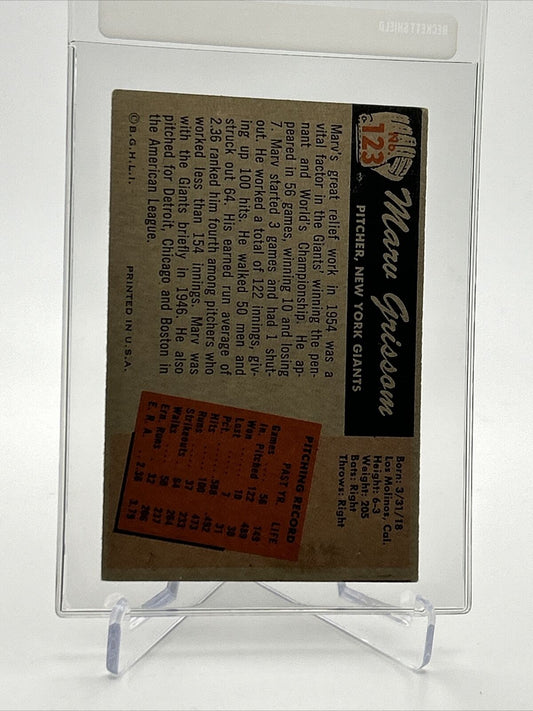 BECKETT SHIELD
No.
123
Marv Grissom
PITCHER, NEW YORK GIANTS
Born: 3/31/18
Los Molinos, Cal.
Height: 6-3
Weight: 205
Bats: Right
Throws: Right
Marv's great relief work in 1954 was a
vital factor in the Giants' winning the pen-
nant and World's Championship. He ap-
peared in 56 games, winning 10 and losing
7. Marv started 3 games and had 1 shut-
out. He worked a total of 122 innings, giv-
ing up 100 hits. He walked 50 men and
struck out 64. His earned run average of
2.36 ranked him fourth among pitchers who
worked less than 154 innings. Marv was
with the Giants briefly in 1946. He also
pitched for Detroit, Chicago and Boston in
the American League.
PITCHING RECORD
PAST YR. LIFE
Games 56 149
In. Pitched 122 489
Won 10 30
Lost 7 31
Pct. .588 .492
Hits 100 473
Runs 37 233
Strikeouts 64 264
Walks 50 237
Ern. Runs 32 206
E. R. A. 2.36 3.79
©B.G.H.L.I.
PRINTED IN U.S.A.